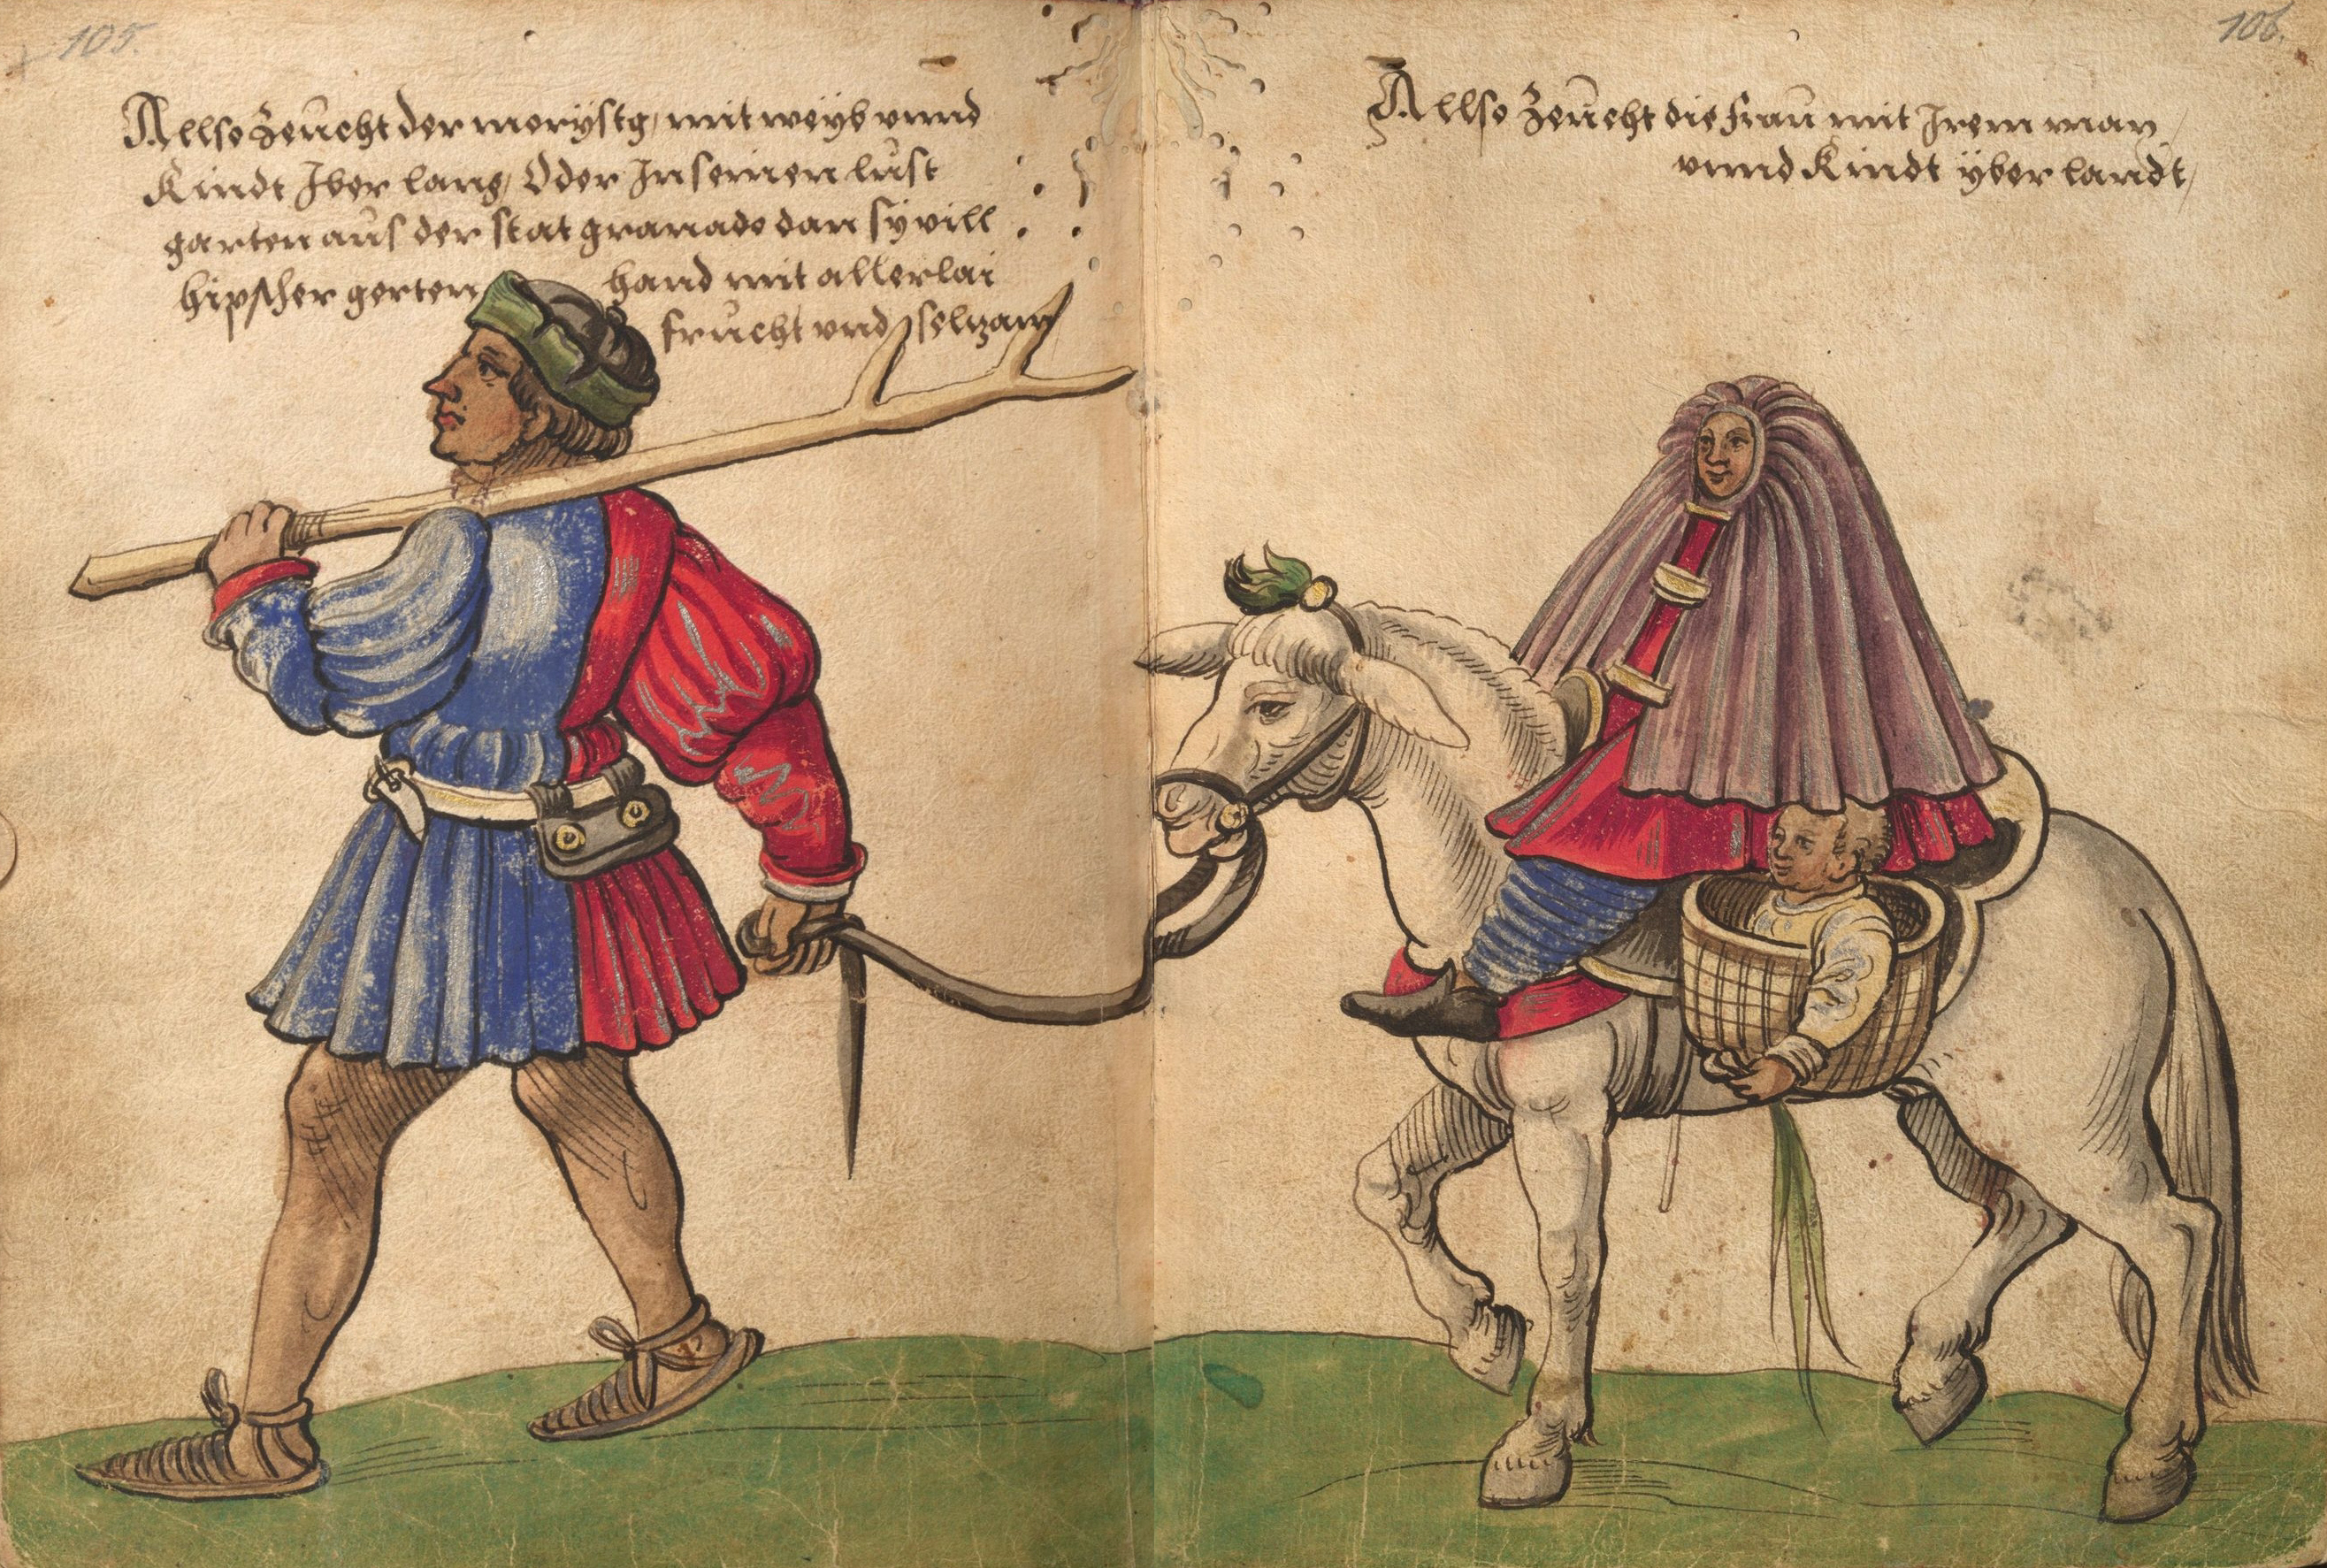 105.
Allso zeücht der morÿstg, mit weÿb vnnd
Kindt Iber lang, Oder In seinen lüst
garten aüs der stat granado dan sÿ vill
hipscher gerten hand mit allerlai
frücht vnd selzam
106.
Allso zeücht die fraü mit Irem man,
vnnd Kindt ÿber landt,